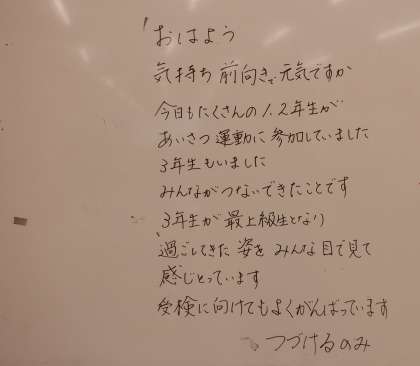 おはよう
気持ち 前向きで 元気ですか
今日もたくさんの1.2年生が
あいさつ運動に参加していました
3年生もいました
みんながつないできたことです
3年生が最上級生となり
過ごしてきた 姿を みんな目で見て
感じとっています
受検に向けてもよくがんばっています
つづけるのみ